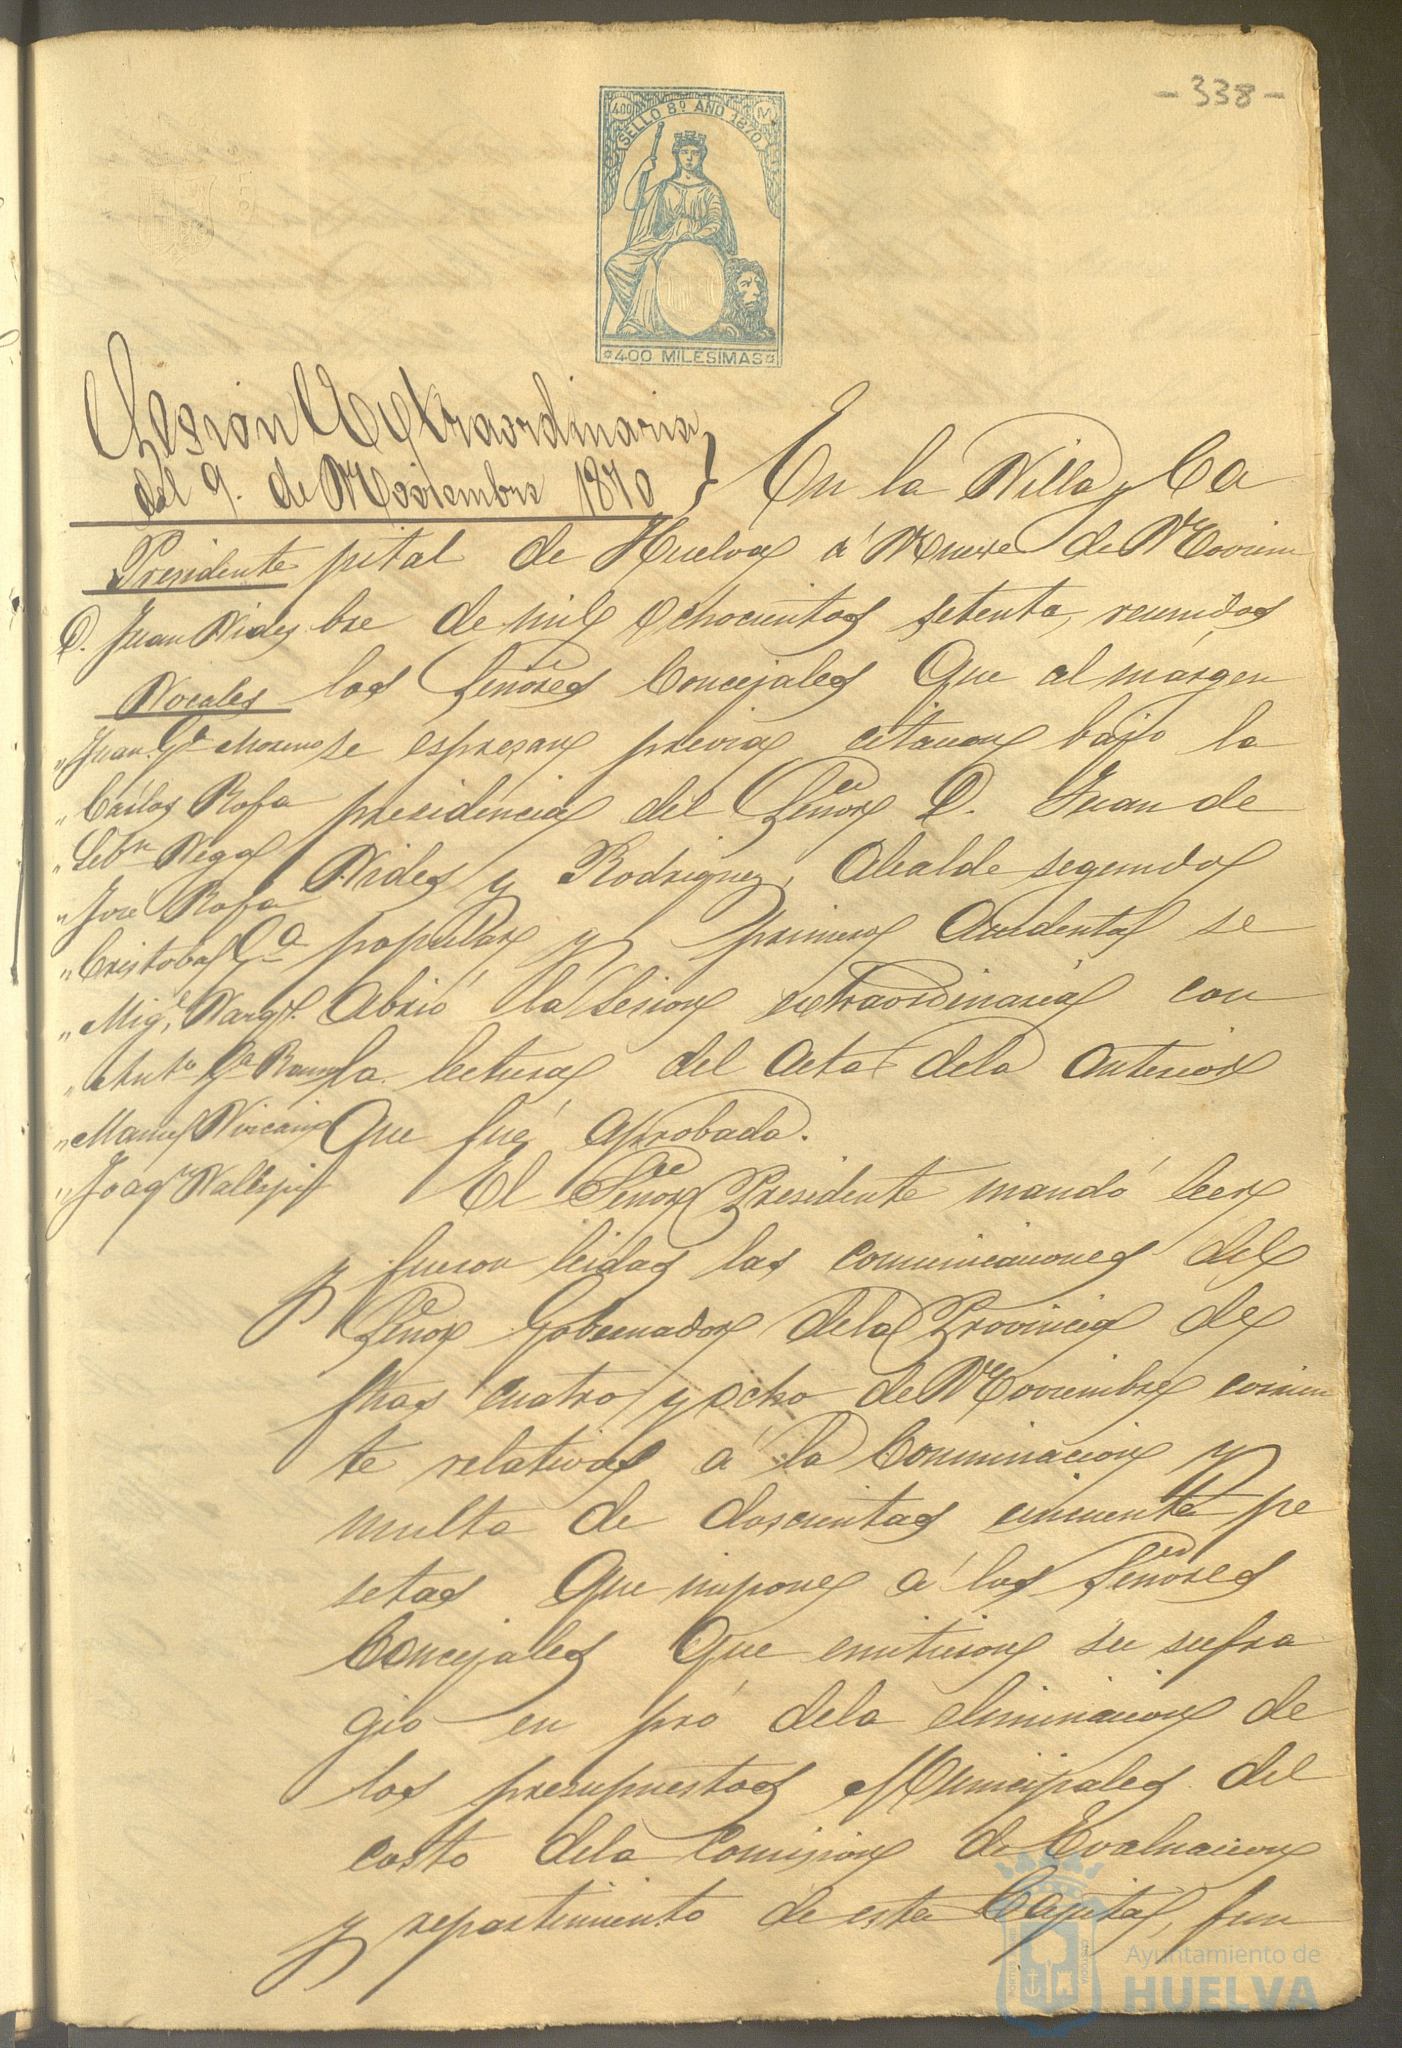 - 338 -
400 M.
SELLO 8º AÑO 1870
400 MILESIMAS
Sesion Extraordinaria
del 9. de Noviembre 1870
Presidente
D. Juan Vides
Vocales
" Juan Gª Moreno
" Cárlos Rofa
" Sebn Vega
" José Rofa
" Cristobal Gª
" Migl Vazqz.
" Antº Gª Ramz
" Manuel
" Joaqn Vallejo
En la Villa, Ca
pital de Huelva á Nueve de Noviem
bre de mil ochocientos setenta, reunidos
los Señores Concejales que al márgen
se espresan previa citacion bajo la
presidencia del Señor D. Juan de
Vides y Rodriguez, Alcalde segundo
popular y primero Accidental se
abrió la Sesion extraordinaria con
la lectura del Acta dela anterior
que fué aprobada.
El Señor Presidente mandó leer
y fueron leidas las comunicaciones del
Señor Gobernador dela Provincia de
fhas cuatro y ocho de Noviembre corrien
te relativas á la Conminacion y
multa de doscientas cincuenta pe
setas que impone á los Señores
Concejales que emitieron su sufra
gio en pró dela eliminacion de
los presupuestos Municipales del
costo dela Comision de Evaluacion
y repartimiento de esta Capital, fun
Ayuntamiento de
HUELVA